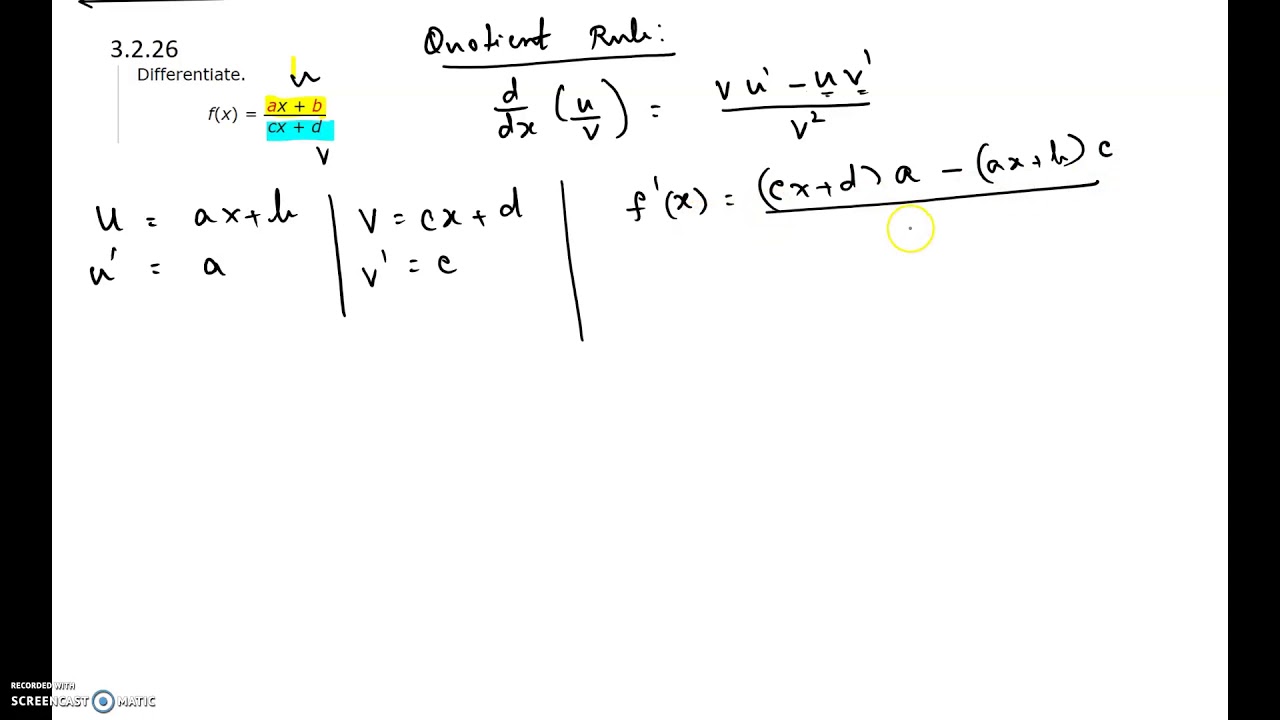 3.2.26
Differentiate.
u
f(x) = ax + b / cx + d
v
Quotient Rule:
d/dx (u/v) = v u' - u v' / v²
u = ax+b
u' = a
v = cx + d
v' = c
f'(x) = (cx+d) a - (ax+b) c
RECORDED WITH
SCREENCAST MATIC